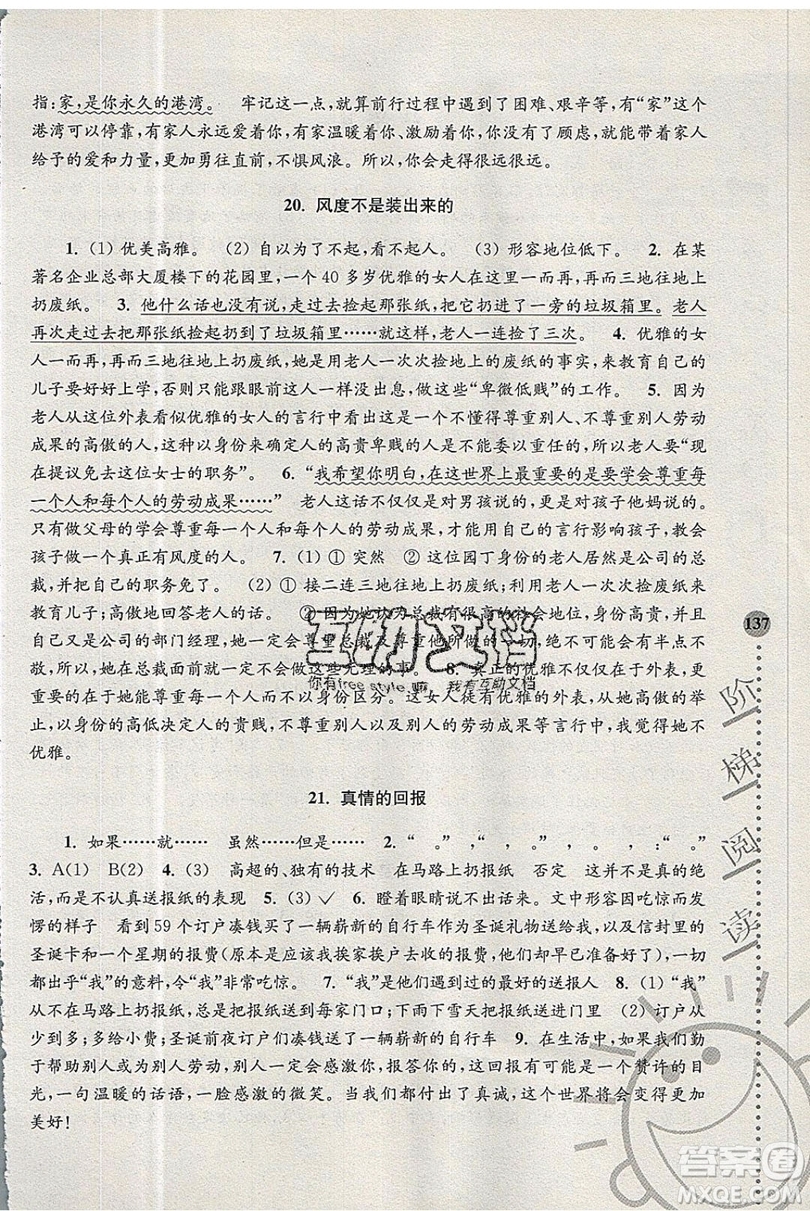 指:家,是你永久的港湾。 牢记这一点,就算前行过程中遇到了困难、艰辛等,有“家”这个
港湾可以停靠,有家人永远爱着你,有家温暖着你、激励着你,你就没有了顾虑,就能带着家人
给予的爱和力量,更加勇往直前,不惧风浪。所以,你会走得很远很远。
20. 风度不是装出来的
1. (1) 优美高雅。 (2) 自以为了不起,看不起人。 (3) 形容地位低下。 2. 在某
著名企业总部大厦楼下的花园里,一个 40 多岁优雅的女人在这里一而再,再而三地往地上
扔废纸。 3. 他什么话也没有说,走过去捡起那张纸,把它扔进了一旁的垃圾箱里。老人
再次走过去把那张纸捡起扔到了垃圾箱里……就这样,老人一连捡了三次。 4. 优雅的女
人一而再,再而三地往地上扔废纸,她是用老人一次次捡地上的废纸的事实,来教育自己的
儿子要好好上学,否则就跟眼前这人一样没出息,做这些“卑微低贱”的工作。 5. 因为
老人从这位外表看似优雅的女人的言行中看出这是一个不懂得尊重别人、不尊重别人劳动
成果的高傲的人,这种以身份来确定人的高贵卑贱的人是不能委以重任的,所以老人要“现
在提议免去这位女士的职务”。 6. “我希望你明白,在这世界上最重要的是要学会尊重每
一个人和每个人的劳动成果……” 老人这话不仅仅是对男孩说的,更是对孩子他妈说的。
只有做父母的学会尊重每一个人和每个人的劳动成果,才能以自己的言行影响孩子,教会
孩子做一个真正有风度的人。 7. (1) ① 突然 ② 这位园丁身份的老人居然是公司的总
裁,并把自己的职务免了。 (2) ① 接二连三地往地上扔废纸;利用老人一次次捡废纸来
教育儿子;高傲地回答老人的话。 ② 因为她认为总裁有很高的社会地位,身份高贵,而且
自己又是公司的部门经理,她一定会非常尊重总裁及与总裁有关的一切,不可能会有半点不
敬,更不会在总裁面前做出这些无理的行为来。 8. 真正的优雅不仅仅在外表,更重要的
表现在于她能尊重每一个人,不以身份区别人。这个女人徒有优雅的外表,从她高傲的举
止,以身份的高低决定人的贵贱,不尊重别人以及别人的劳动成果等言行中,我觉得她不
优雅。
互动文档
你有free style嘛,我有互动文档
21. 真情的回报
1. 如果……就…… 虽然……但是…… 2. “ 。”,“ , 。 , 。 , : “ 。”
3. A(1) B(2) 4. (3) 高超的、独有的技术 在马路上扔报纸 否定 这不是真正的绝
活,而是不认真送报纸的表现 5. (3) ✓ 6. 瞪着眼睛说不出话来。文中形容因吃惊而发
愣的样子 看到 59 个订户凑钱买了一辆崭新的自行车作为圣诞礼物送给我,以及信封里的
圣诞卡和一个星期的报费(原本是应该我挨家挨户去收的报费,他们却主动给我了),一切
都出乎“我”的意料,令“我”非常吃惊。 7. “我”是他们遇到过的最好的送报人 8. (1) “我”
从不在马路上扔报纸,总是放到每家门口;下雨下雪天把报纸送进门里 (2) 订户从
少到多;多给小费;圣诞前夜订户们凑钱送了一辆崭新的自行车 9. 在生活中,如果我们勤
于帮助别人或为别人劳动,别人一定会感激你,报答你的,这回报有可能是一个赞许的目
光,一句温暖的话语,一脸感激的微笑。当我们都付出了真诚,这个世界将会变得更加
美好!
137
阶梯阅读
答案圈
MXQE.COM